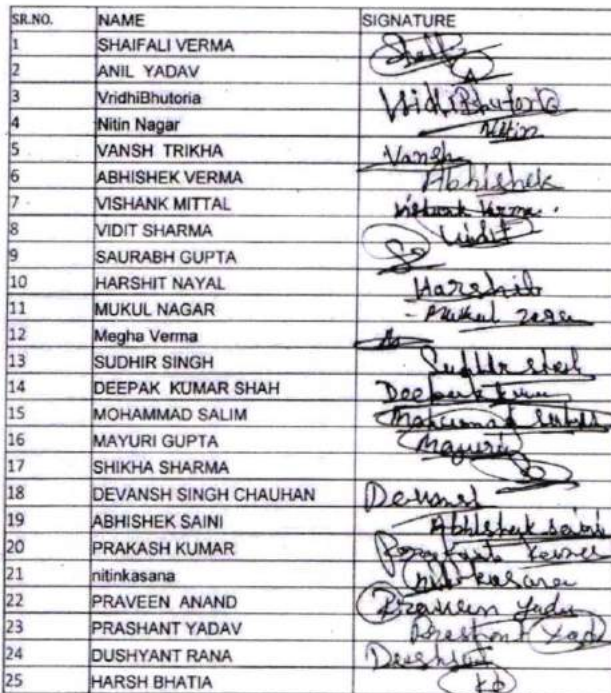 SR.NO. NAME SIGNATURE
1 SHAIFALI VERMA
2 ANIL YADAV
3 VridhiBhutoria VridhiBhutoria
4 Nitin Nagar Nitin
5 VANSH TRIKHA Vansh
6 ABHISHEK VERMA Abhishek
7 VISHANK MITTAL
8 VIDIT SHARMA Vidit
9 SAURABH GUPTA
10 HARSHIT NAYAL Harshit
11 MUKUL NAGAR Mukul
12 Megha Verma
13 SUDHIR SINGH Sudhir Singh
14 DEEPAK KUMAR SHAH Deepak
15 MOHAMMAD SALIM
16 MAYURI GUPTA Mayuri
17 SHIKHA SHARMA
18 DEVANSH SINGH CHAUHAN Devansh
19 ABHISHEK SAINI Abhishek Saini
20 PRAKASH KUMAR Kumar
21 nitinkasana kasana
22 PRAVEEN ANAND Praveen
23 PRASHANT YADAV Prashant Yadav
24 DUSHYANT RANA
25 HARSH BHATIA